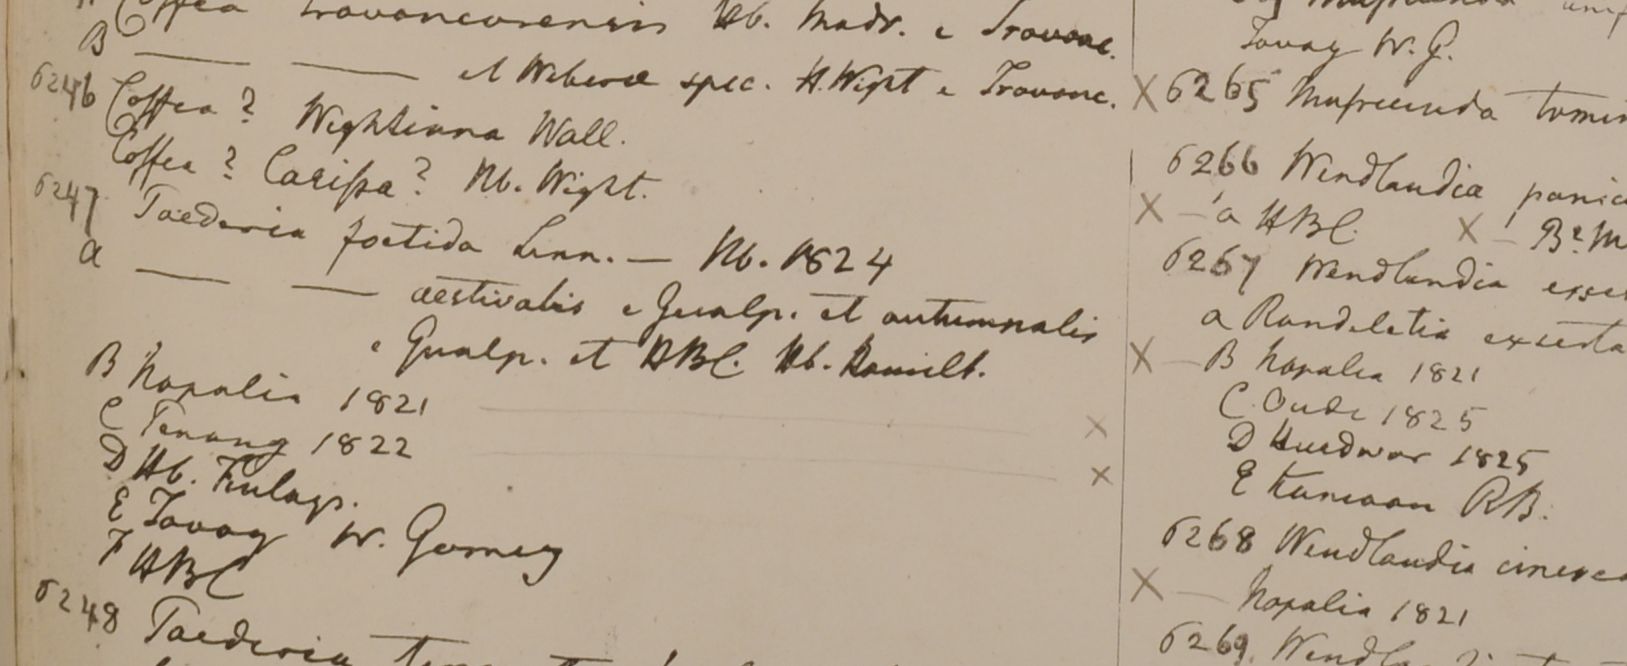 Coffea travancorensis Hb. Madr. e Travanc.
B — — et Weberae spec. H. Wight e Travanc.
6246 Coffea? Wightiana Wall.
Coffea? Carissa? Hb. Wight.
6247 Paederia foetida Linn. — Hb. 1824
a — — aestivalis e Gualp. et autumnalis
e Gualp. et HBC. Hb. Hamilt.
B Napalia 1821 ×
C Penang 1822 ×
D Hb. Finlays.
E Tavoy W. Gomez
F HBC
6248 Paederia
Tavoy W. G.
× 6265 Mussaenda tomen
6266 Wendlandia panic
× — a HBC. × — B
6267 Wendlandia exser
a Rondeletia exserta
× — B Napalia 1821
C. Oude 1825
D Hurdwar 1825
E Kamaon RB.
6268 Wendlandia cinerea
× — Napalia 1821
6269. Wendl